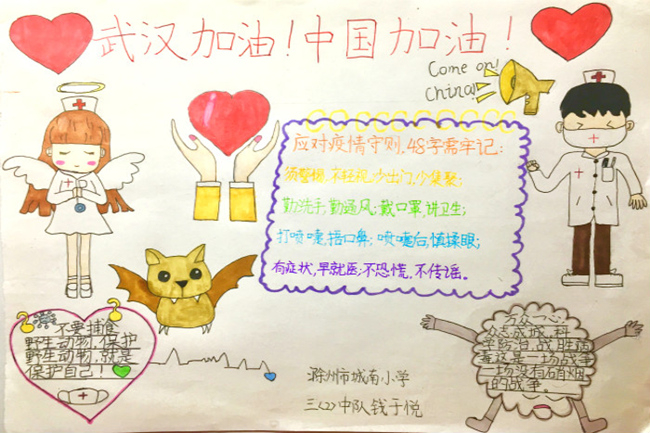 武汉加油！中国加油！
Come on!
China!
应对疫情守则，48字需牢记：
须警惕，不轻视，少出门，少集聚；
勤洗手，勤通风；戴口罩，讲卫生；
打喷嚏，捂口鼻；喷嚏后，慎揉眼；
有症状，早就医；不恐慌，不传谣。
不要捕食
野生动物，保护
野生动物，就是
保护自己！
万众一心，
众志成城，科
学防治，战胜疫
毒这是一场战争
一场没有硝烟
的战争。
滁州市城南小学
三(2)中队钱于悦